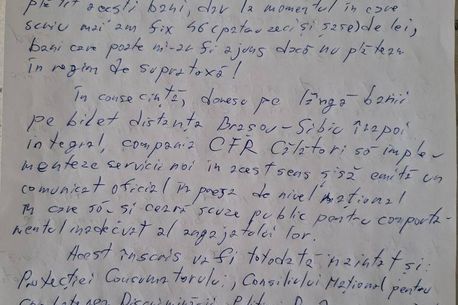 plătit acești bani, dar la momentul în care
scriu mai am fix 46 (patruzeci și șase) de lei,
bani care poate mi-ar fi ajuns dacă nu plăteam
în regim de supratoxă!
În consecință, doresc pe lângă banii
pe bilet distanța Brașov-Sibiu înapoi
integral, compania CFR Călători să imple
menteze servicii noi în acest sens și să emită un
comunicat oficial în presa de nivel național
în care să-și ceară scuze public pentru comporta-
mentul inadecvat al angajatului lor.
Acest înscris va fi totodată înaintat și:
Protecției Consumatorului, Consiliului Național pentru
Combaterea Discriminării